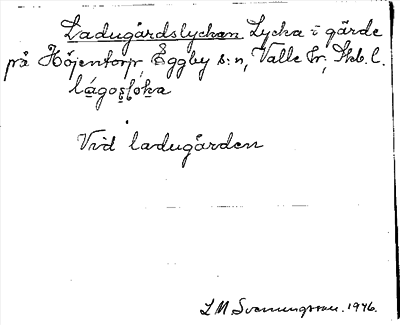 Ladugårdslyckan Lycka i gärde
på Höjentorp, Eggby s:n, Valle hr, Skb. l.
Vid ladugården
L M Svenungsson. 1946.